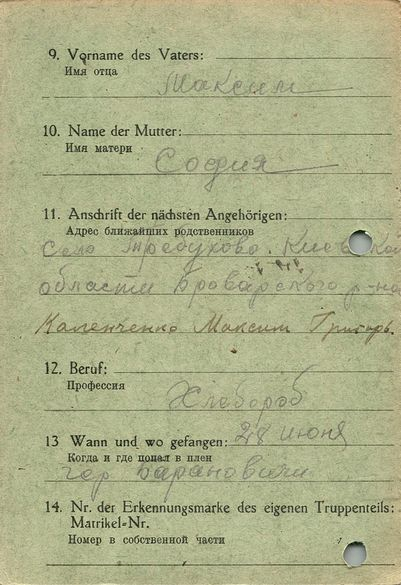 9. Vorname des Vaters:
Имя отца
Максим
10. Name der Mutter:
Имя матери
София
11. Anschrift der nächsten Angehörigen:
Адрес ближайших родственников
Село Требухово. Киевской
области Броварского р-на
Каленченко Максим Григорь.
12. Beruf:
Профессия
Хлебороб
13 Wann und wo gefangen: 28 июня
Когда и где попал в плен
гор Барановичи
14. Nr. der Erkennungsmarke des eigenen Truppenteils:
Matrikel=Nr.
Номер в собственной части